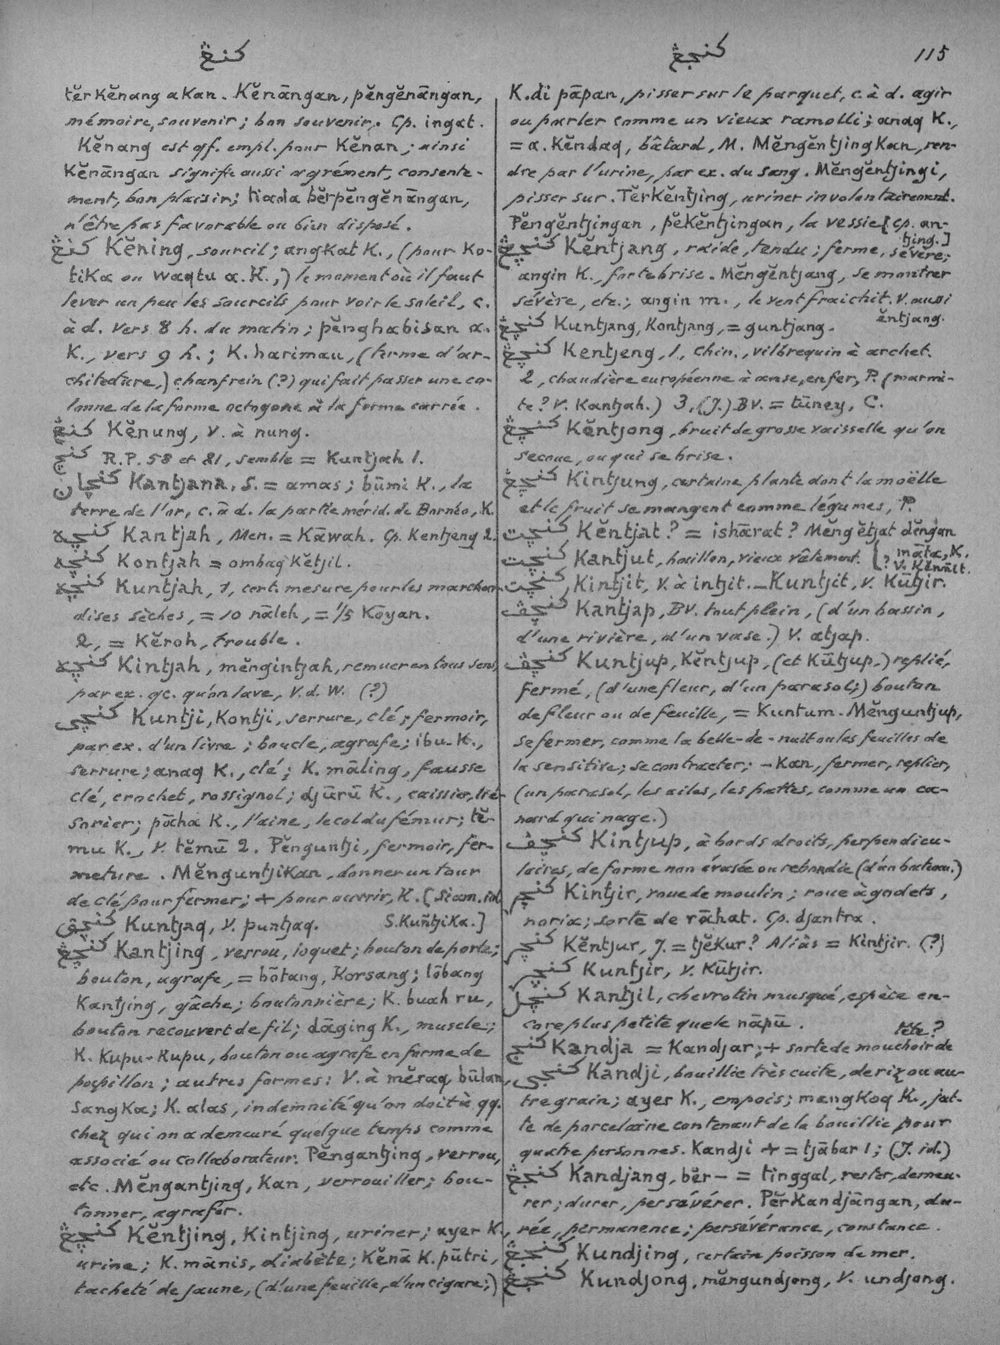 كنڠ
كنجڠ 115
tĕrkĕnang akan. Kĕnāngan, pĕngĕnāngan,
mémoire, souvenir; bon souvenir. Cp. ingat.
Kĕnang est qf. empl. pour Kĕnan; ainsi
Kĕnāngan signifie aussi agrément, consente-
ment, bon plaisir; tiada bĕrpĕngĕnāngan,
n'être pas favorable ou bien disposé.
كنڠ Kĕning, sourcil; angkat K., (pour Ko-
tika ou waqtu a. K.,) le moment où il faut
lever un peu les sourcils pour voir le soleil, c.
à d. vers 8 h. du matin; pĕnghabisan a.
K., vers 9 h.; K. harimau, (terme d'ar-
chitecture,) chanfrein (?) qui fait passer une co-
lonne de la forme octogone à la forme carrée.
كنڠ Kĕnung, v. à nung.
كنچ R.P. 58 et 81, semble = Kuntjah 1.
كنچان Kantjana, S. = amas; būmi K., la
terre de l'or, c. à d. la partie mérid. de Bornéo, K.
كنچه Kantjah, Men. = Kāwah. Cp. Kentjeng 2.
كنچه Kontjah = ombaq Kĕtjil.
كنچه Kuntjah, 1, cert. mesure pour les marchan-
dises sèches, = 10 nāleh, = 1/5 Kōyan.
2, = Kĕroh, trouble.
كنچه Kintjah, mĕngintjah, remuer en tous sens,
par ex. qc. qu'on lave, V.d.W. (?)
كنچي Kuntji, Kontji, serrure, clé; fermoir,
par ex. d'un livre; boucle, agrafe; ibu K.,
serrure; anaq K., clé; K. māling, fausse
clé, crochet, rossignol; djūrū K., caissier, tré-
sorier; pāha K., l'aine, le col du fémur; tĕ-
mu K., v. tĕmū 2. Pĕnguntji, fermoir, fer-
meture. Mĕnguntjikan, donner un tour
de clé pour fermer; + pour ouvrir, K. [Siam. id.
كنچق Kuntjaq, v. puntjaq. S. Kuñtjika.]
كنچڠ Kantjing, verrou, loquet; bouton de porte;
bouton, agrafe, = bōtang, Korsang; lōbang
Kantjing, gâche; boutonnière; K. buah ru,
bouton recouvert de fil; dāging K., muscle;
K. Kupu-Kupu, bouton ou agrafe en forme de
papillon; autres formes: V. à mĕraq būlan,
sangka; K. alas, indemnité qu'on doit à qq.
chez qui on a demeuré quelque temps comme
associé ou collaborateur. Pĕngantjing, verrou,
etc. Mĕngantjing, Kan, verrouiller; bou-
tonner, agrafer.
كنچڠ Kĕntjing, Kintjing, uriner; ayer K.,
urine; K. mānis, diabète; Kĕnā K. pūtri,
tacheté de jaune, (d'une feuille, d'un cigare;)
K. di pāpan, pisser sur le parquet, c. à d. agir
ou parler comme un vieux ramolli; anaq K.,
= a. Kĕndaq, bâtard, M. Mĕngĕntjingkan, ren-
dre par l'urine, par ex. du sang. Mĕngĕntjingi,
pisser sur. Tĕrkĕntjing, uriner involontairement.
Pĕngĕntjingan, pĕkĕntjingan, la vessie [Cp. an-
tjing.]
كنچڠ Kĕntjang, raide, tendu; ferme, sévère;
angin K., forte brise. Mĕngĕntjang, se montrer
sévère, etc.; angin m., le vent fraîchit. V. aussi
ĕntjang.
كنچڠ Kuntjang, Kontjang, = guntjang.
كنچڠ Kentjeng, 1, Chin., vilbrequin à archet.
2, chaudière européenne à anse, en fer, P. (marmi-
te? V. Kantjah.) 3, (J.) BV. = tūney, C.
كنچڠ Kĕntjong, bruit de grosse vaisselle qu'on
secoue, ou qui se brise.
كنچڠ Kintjung, certaine plante dont la moëlle
et le fruit se mangent comme légumes, P.
كنچت Kĕntjat? = ishārat? Mĕngĕtjat dĕngan
māta, K.
كنچت Kantjut, haillon, vieux vêtement. [? V. Kĕnālt.
كنچت Kintjit, v. à intjit. — Kuntjit, v. Kūtjir.
كنچڤ Kantjap, BV. tout plein, (d'un bassin,
d'une rivière, d'un vase.) V. atjap.
كنچڤ Kuntjup, Kĕntjup, (et Kūtjup,) replié,
fermé, (d'une fleur, d'un parasol;) bouton
de fleur ou de feuille, = Kuntum. Mĕnguntjup,
se fermer, comme la belle-de-nuit ou les feuilles de
la sensitive; se contracter; — Kan, fermer, replier,
(un parasol, les ailes, les pattes, comme un ca-
nard qui nage.)
كنچڤ Kintjup, à bords droits, perpendicu-
laires, de forme non évasée ou rebondie (d'un bateau.)
كنچر Kintjir, roue de moulin; roue à godets,
noria; sorte de rāhat. Cp. djantra.
كنچر Kĕntjur, J. = tjĕkur? Aliās = Kintjir. (?)
كنچر Kuntjir, v. Kūtjir.
كنچل Kantjil, chevrotin musqué, espèce en-
core plus petite que le nāpū. tête?
كنج Kandja = Kandjar; + sorte de mouchoir de
كنجي Kandji, bouillie très cuite, de riz ou au-
tre grain; ayer K., empois; mangkoq K., jat-
te de porcelaine contenant de la bouillie pour
quatre personnes. Kandji + = tjābar 1; (J. id.)
كنجڠ Kandjang, bĕr- = tinggal, rester, demeu-
rer; durer, persévérer. Pĕrkandjāngan, du-
rée, permanence; persévérance, constance.
كنجڠ Kundjing, certain poisson de mer.
كنجڠ Kundjong, mĕngundjong, v. undjong.